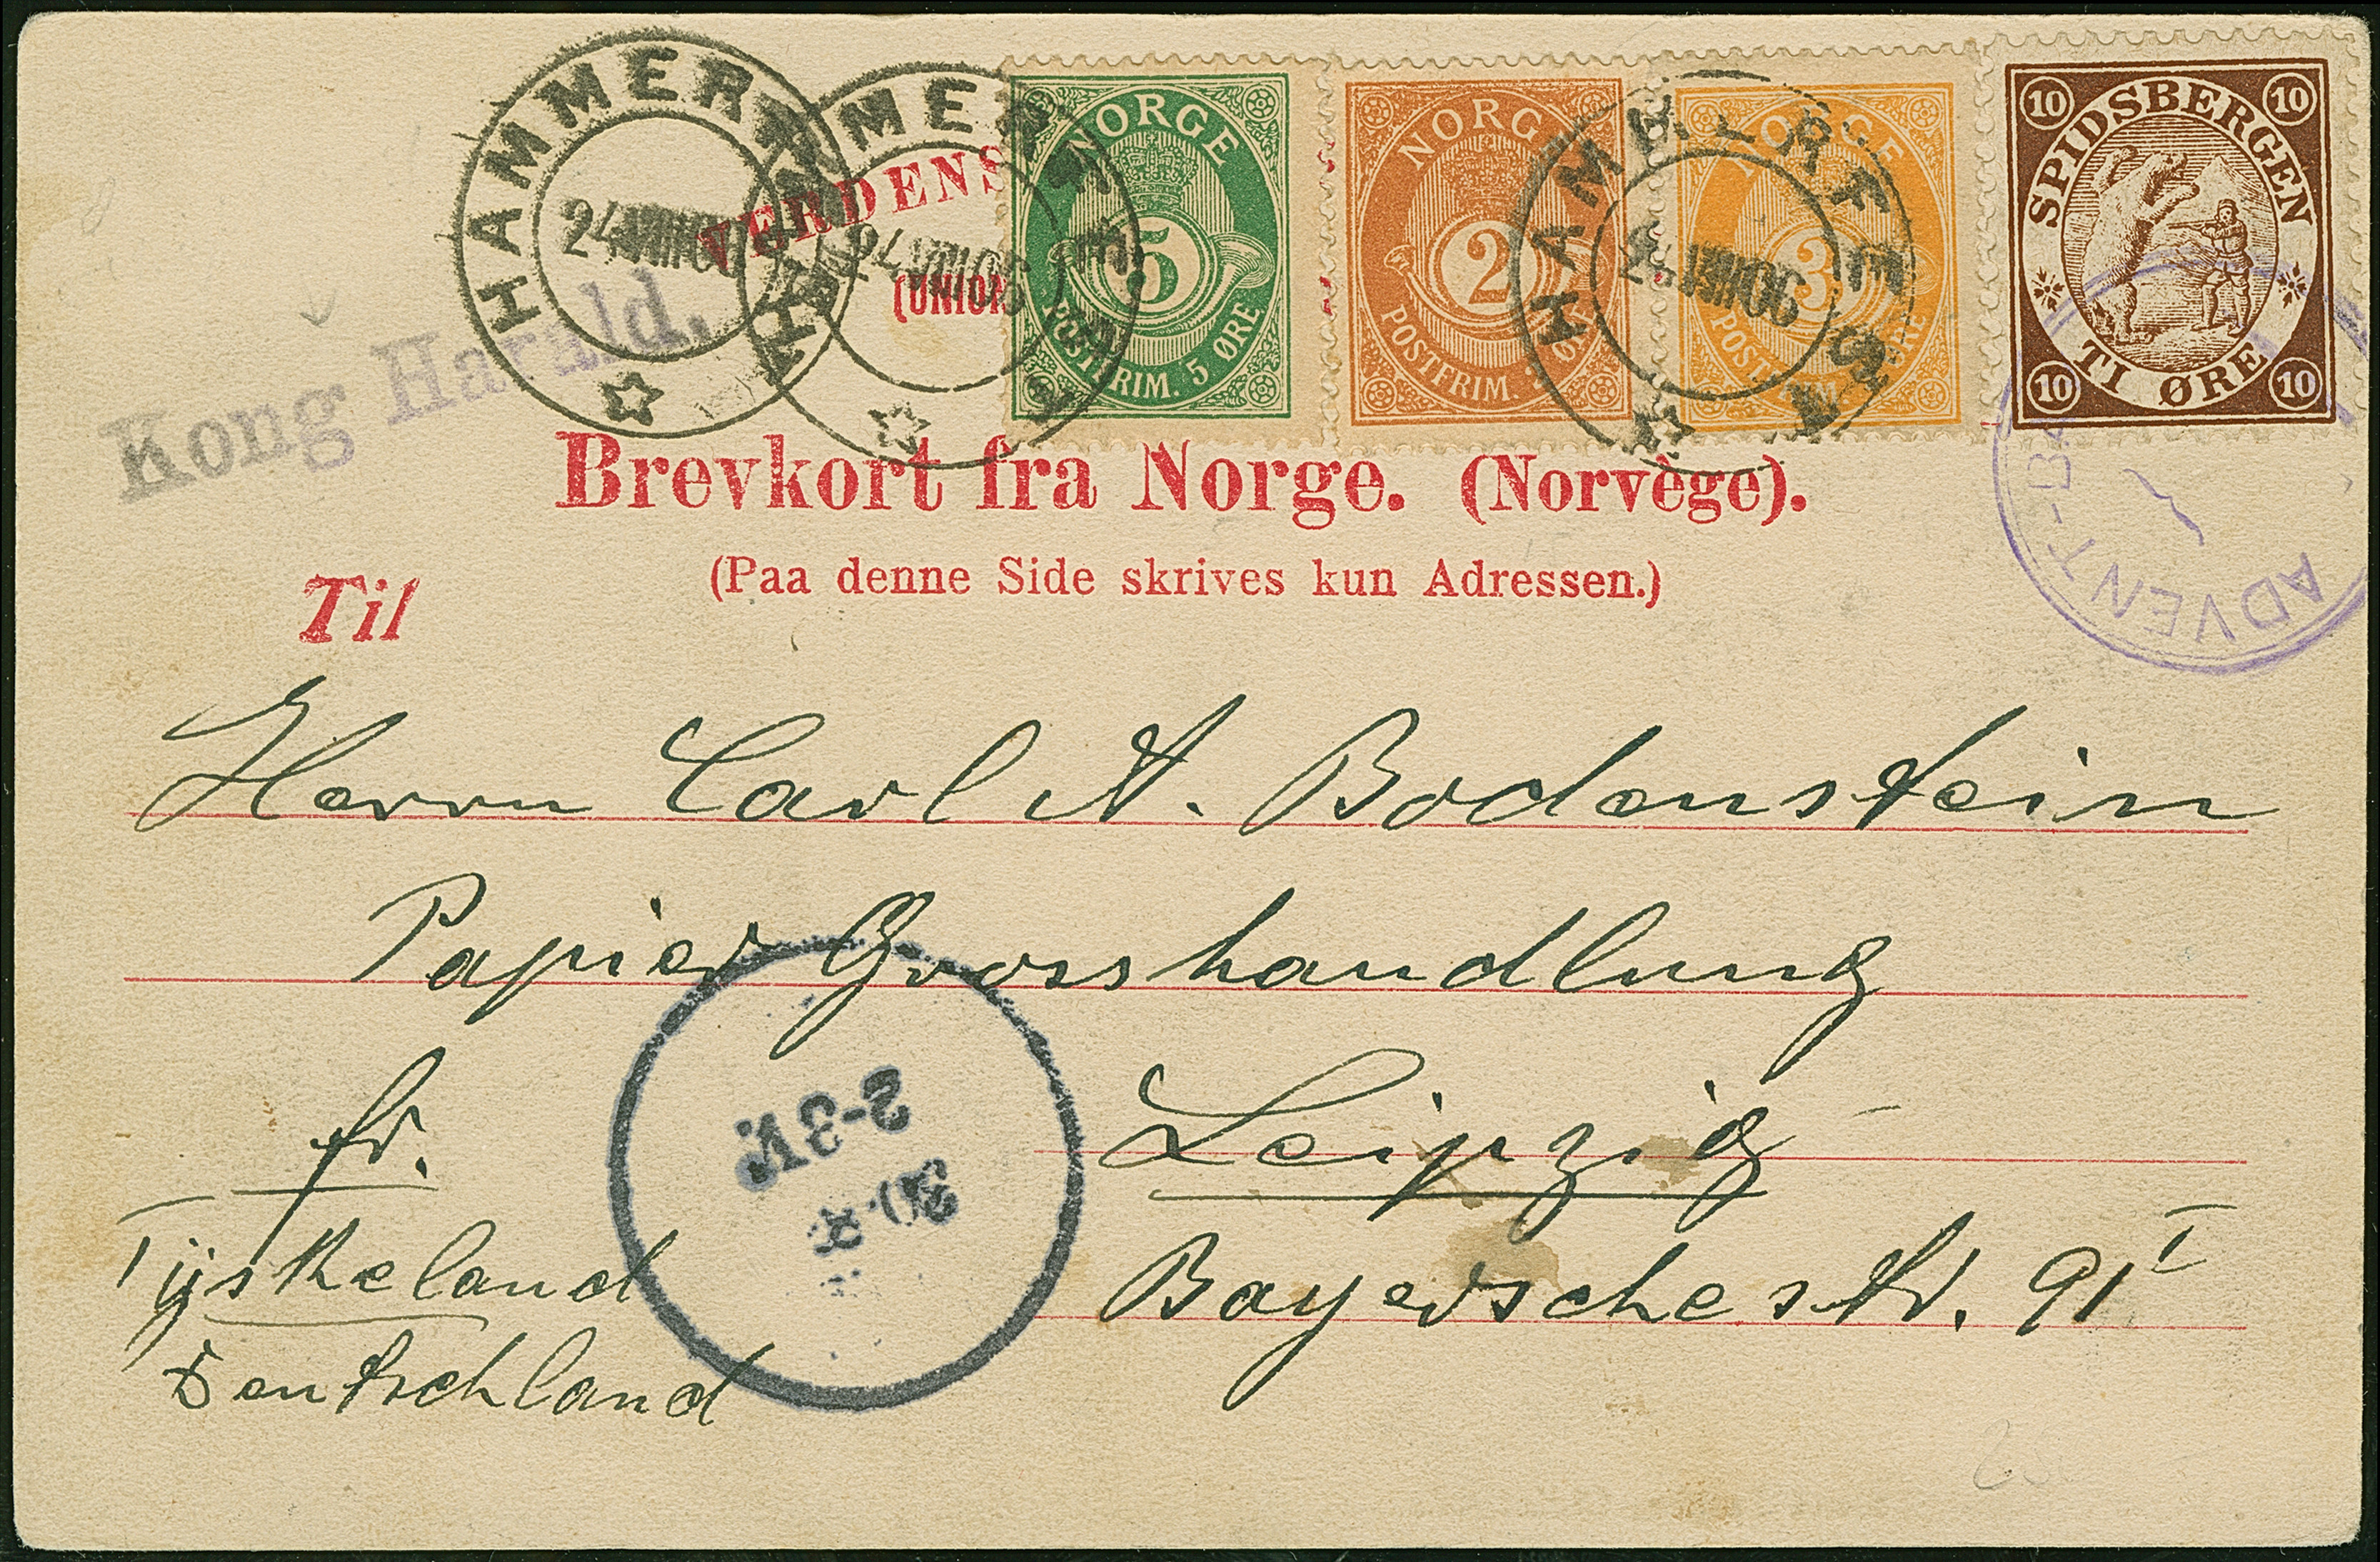 HAMMERFEST
24 VIII 06
HAMMERFEST
24 VIII 06
VERDENS
(UNION
NORGE
5
POSTFRIM. 5 ØRE
NORGE
2
POSTFRIM. 2 ØRE
NORGE
3
POSTFRIM. 3 ØRE
HAMMERFEST
24 VIII 06
10 10
SPIDSBERGEN
TI ØRE
10 10
ADVENT-BA
Kong Harald.
Brevkort fra Norge. (Norvège).
(Paa denne Side skrives kun Adressen.)
Til
Herrn Carl A. Bodenstein
Papier Grosshandlung
fr. Leipzig
Tyskeland Bayerschestr. 91 I
Deutschland
2-3 N.
30.